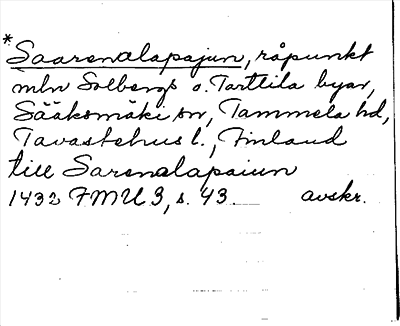 *Saarenalapajun, råpunkt
mln Solbergs o. Tarttila byar,
Sääksmäki sn, Tammela hd,
Tavastehus l., Finland
till Sarenalapaiun
1432 FMU 3, s. 43. avskr.